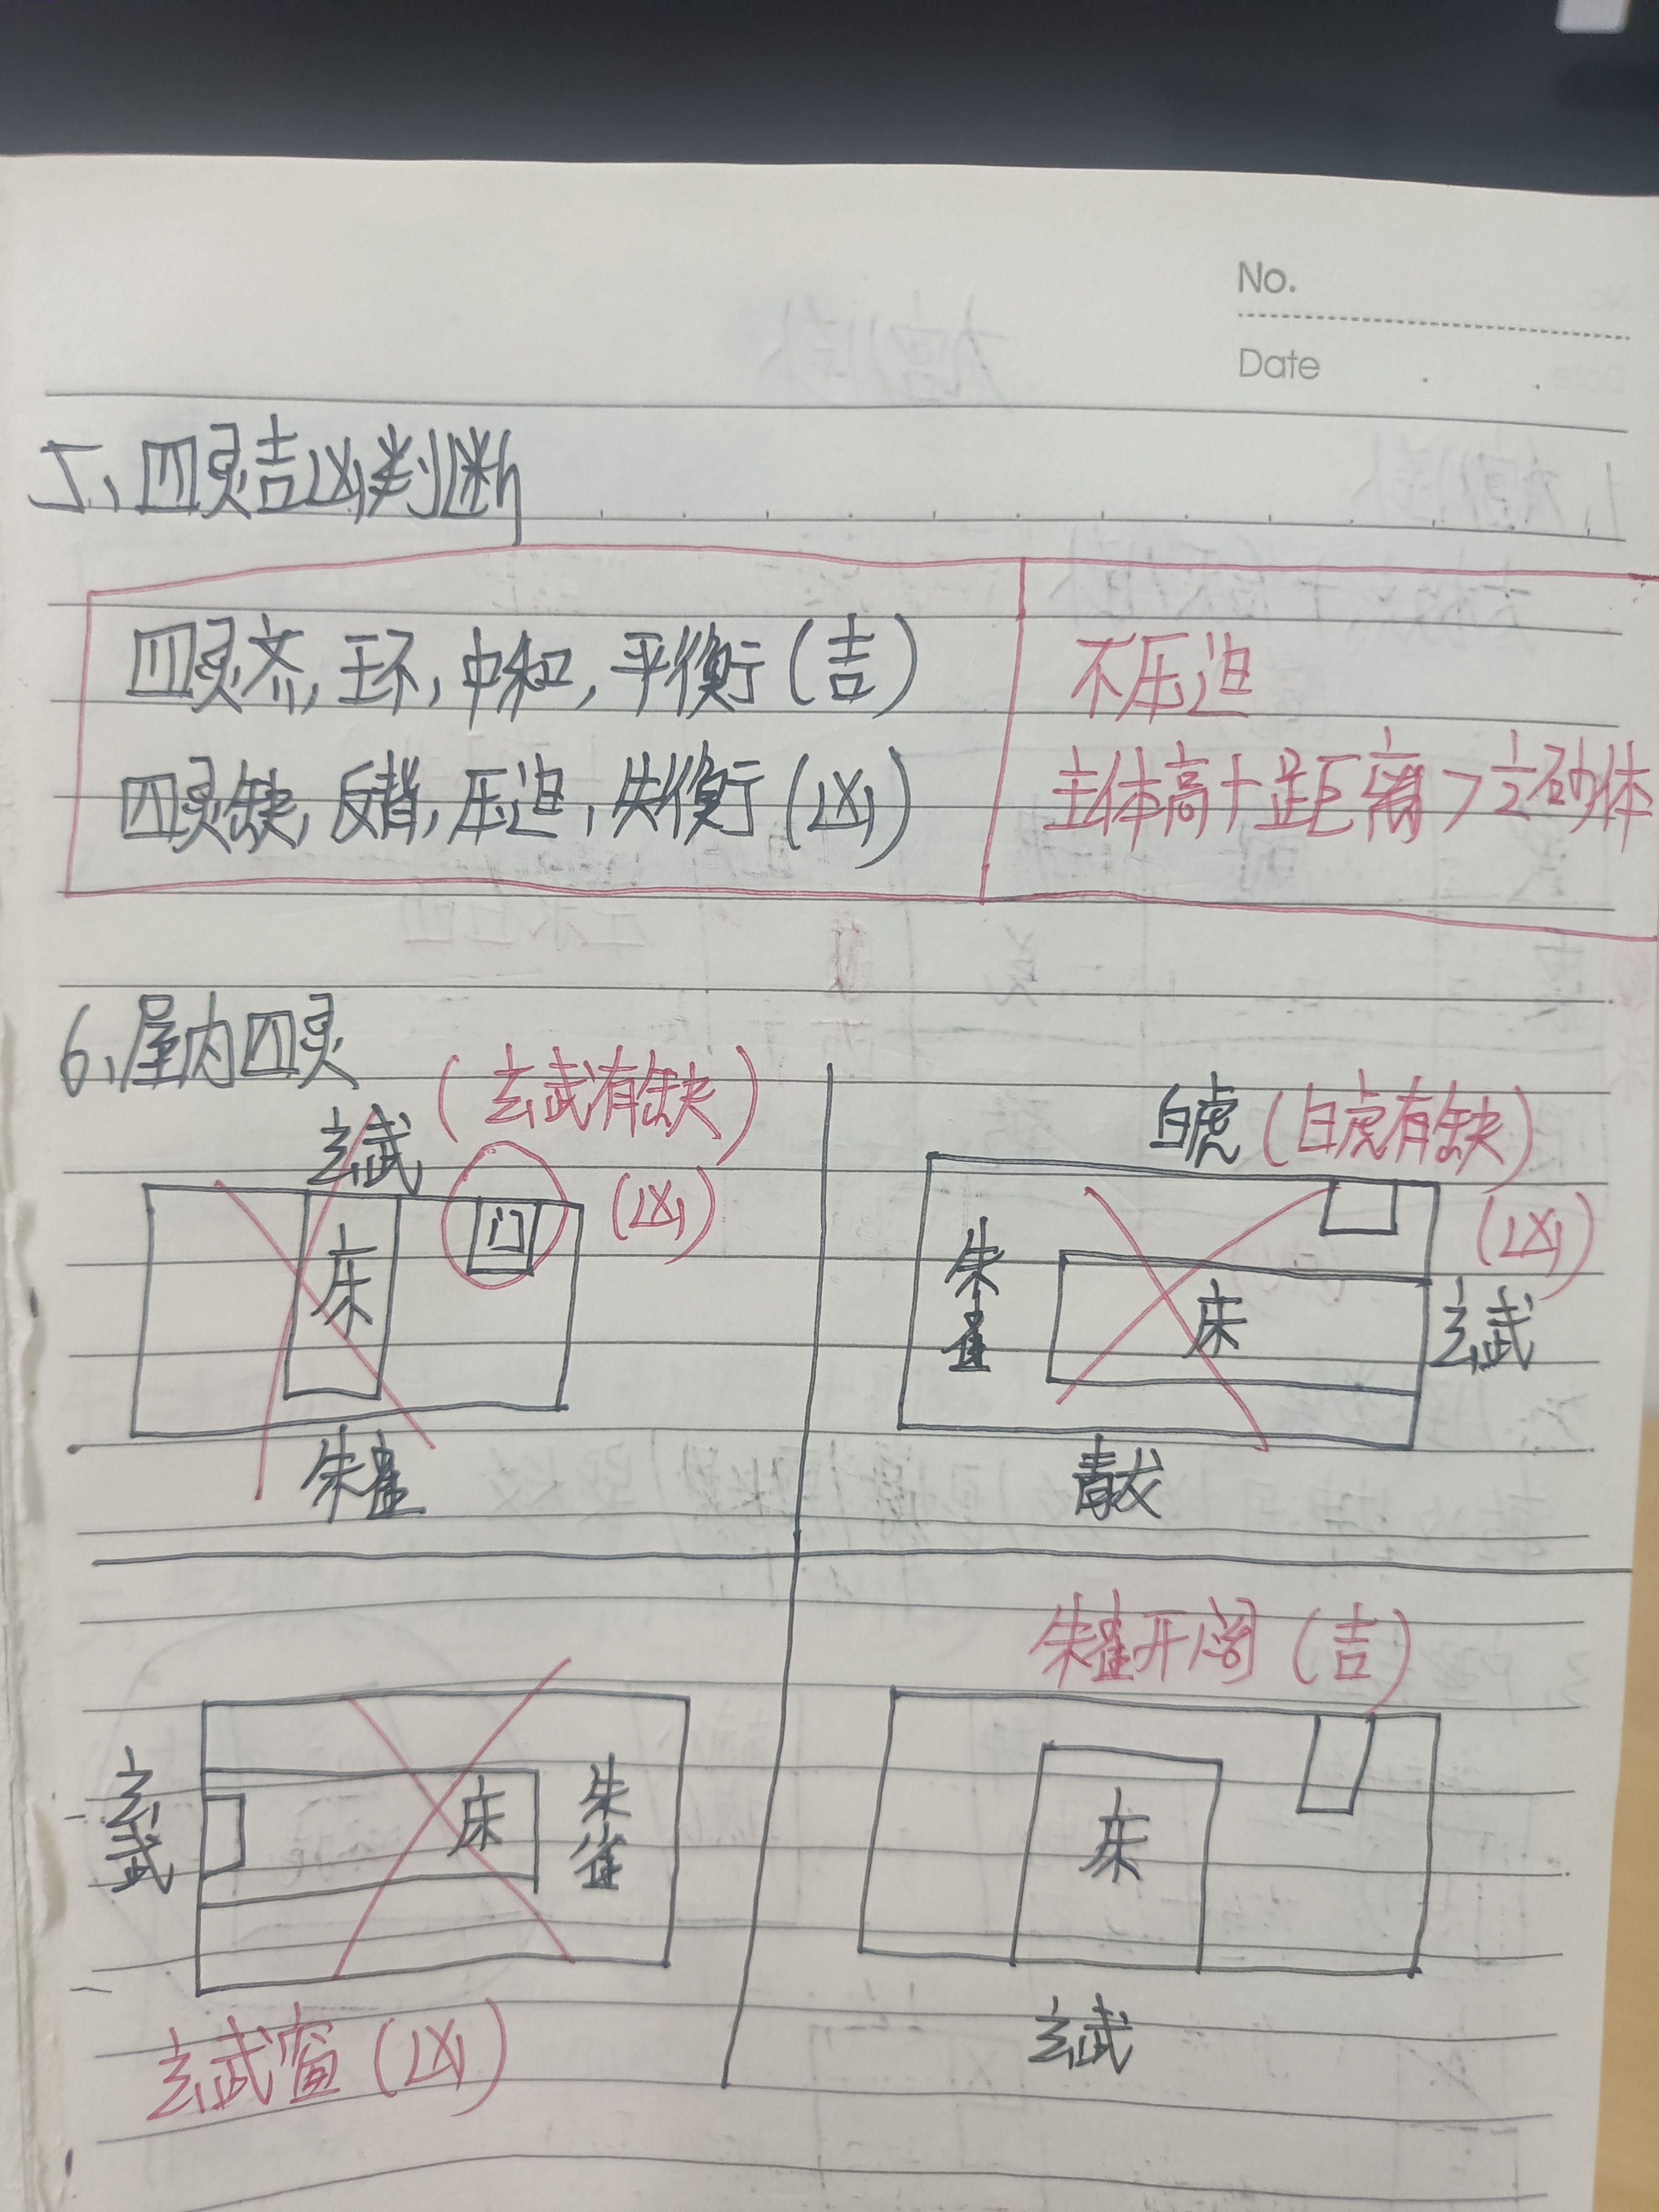 No.
Date
5、四灵吉凶判断
四灵齐,玉环,中和,平衡(吉)
不压迫
四灵缺,反背,压迫,失衡(凶)
主体高+距离>½砂体
6、屋内四灵
玄武
(玄武有缺)
(凶)
床
门
朱雀
白虎
(白虎有缺)
(凶)
朱雀
床
玄武
青龙
玄武
床
朱雀
玄武窗(凶)
朱雀开阔(吉)
床
玄武